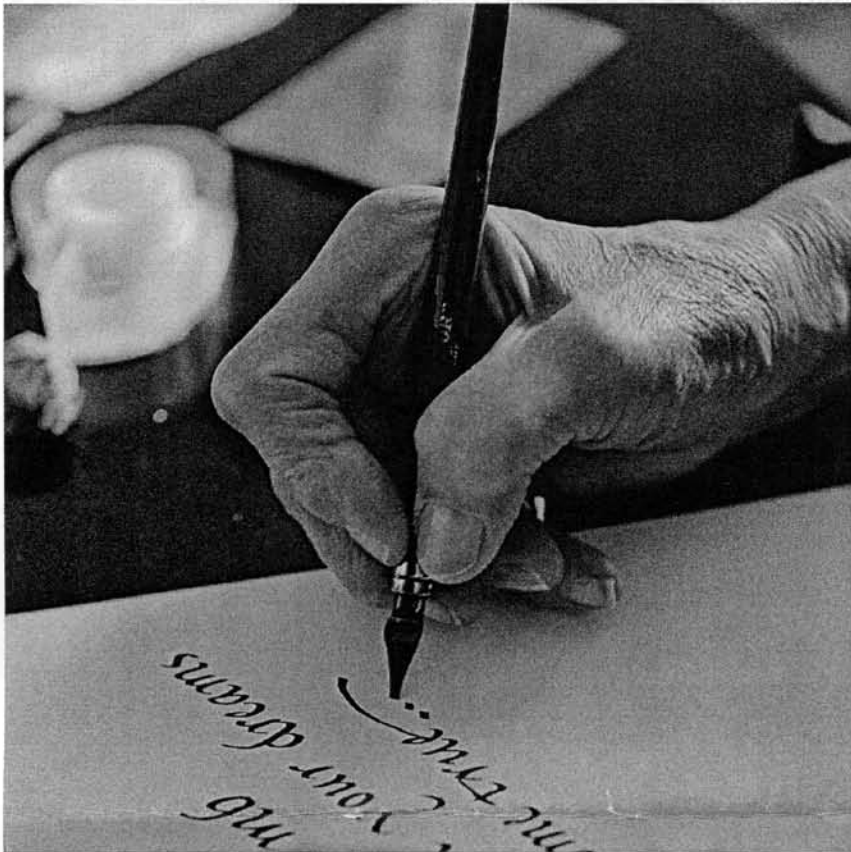 your dreams
me true..